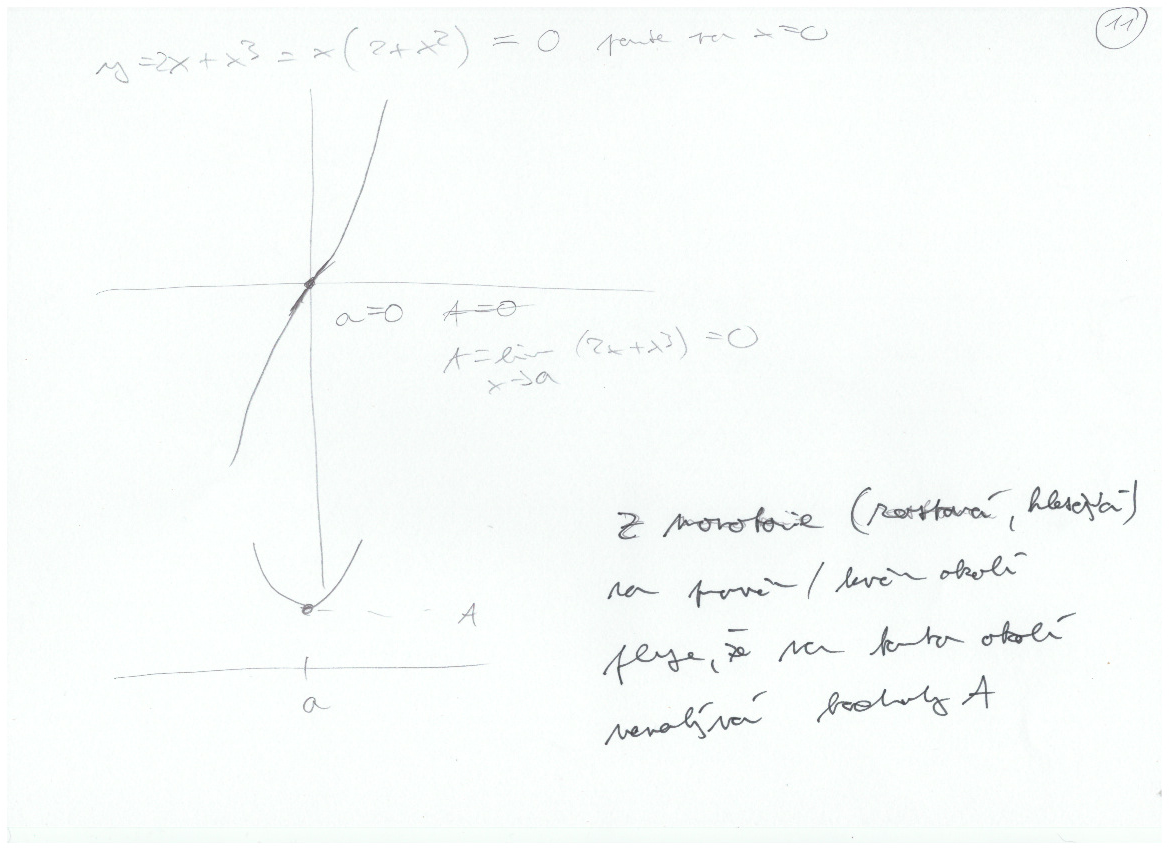 11
y = 2x + x³ = x(2 + x²) = 0 pouze pro x = 0
a = 0 A = 0
A = lim (2x + x³) = 0
x → a
A
a
Z monotonie (rostoucí, klesající)
na pravém / levém okolí
plyne, že na tomto okolí
nenabývá hodnoty A